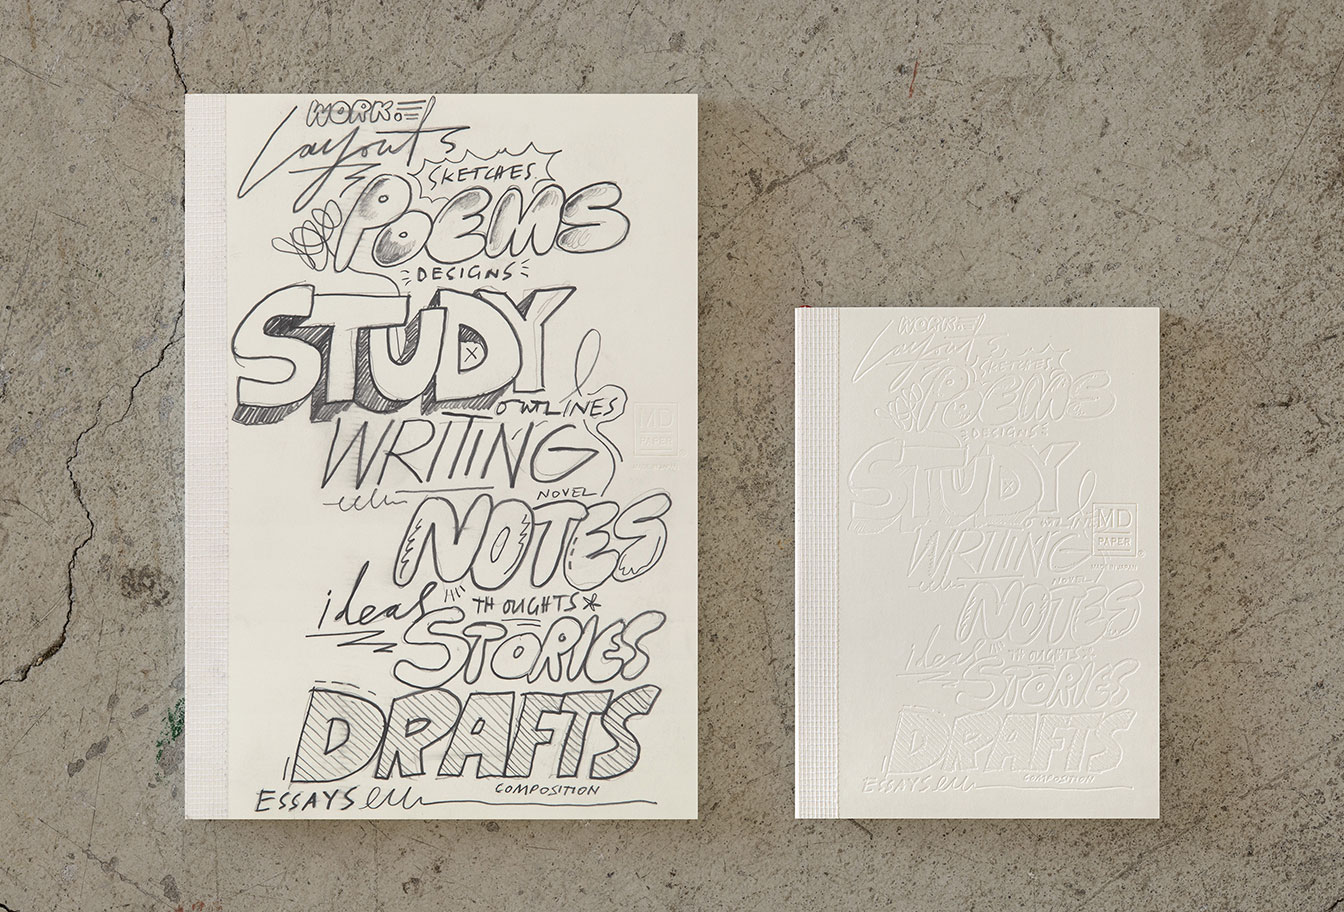 WORK.
Layouts
SKETCHES.
POEMS
DESIGNS
STUDY
OUTLINES
WRITING
NOVEL
NOTES
ideas
THOUGHTS*
STORIES
DRAFTS
COMPOSITION
ESSAYS
MD
PAPER
MADE IN JAPAN
WORK.
Layouts
SKETCHES.
POEMS
DESIGNS
STUDY
OUTLINE
MD
PAPER
®
MADE IN JAPAN
WRITING
NOVEL
NOTES
ideas
THOUGHTS*
STORIES
DRAFTS
COMPOSITION
ESSAYS